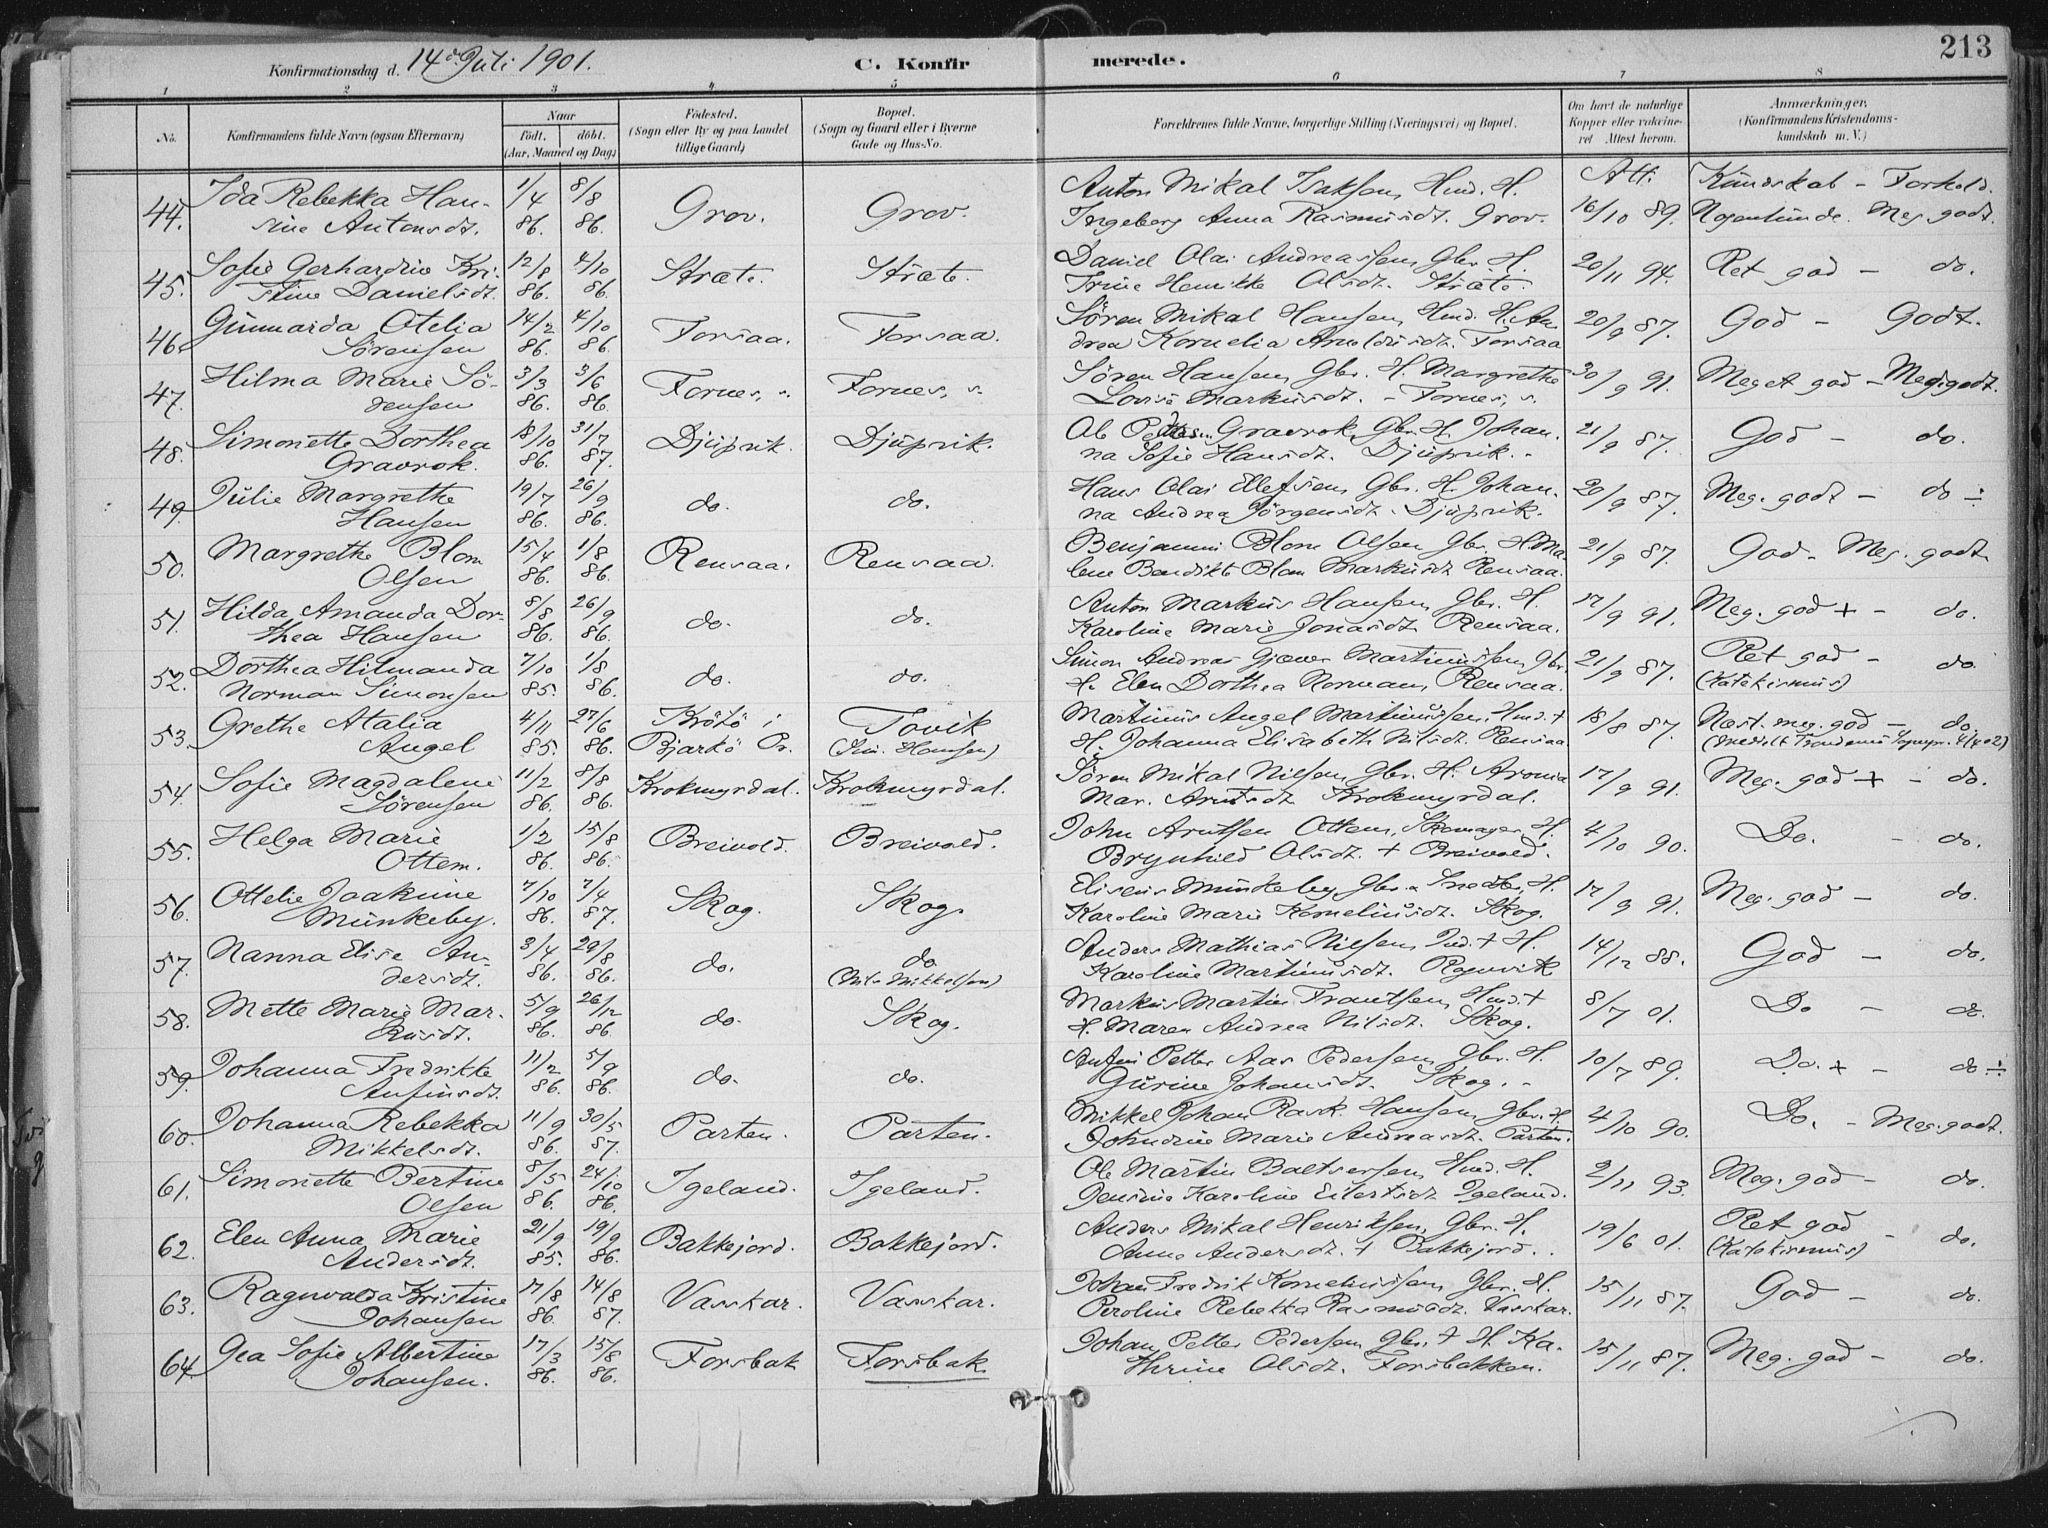 213
Konfirmationsdag d. 14de Juli 1901. C. Konfirmerede.
1 2 3 4 5 6 7 8
No. Konfirmandens fulde Navn (ogsaa Efternavn) Naar Födt. döbt. (Aar, Maaned og Dag) Födested. (Sogn eller By og paa Landet tillige Gaard) Bopæl. (Sogn og Gaard eller i Byerne Gade og Hus-No. Forældrenes fulde Navne, borgerlige Stilling (Næringsvei) og Bopæl. Om havt de naturlige Kopper eller vakcineret Attest herom. Anmærkninger. (Konfirmandens Kristendomskundskab m. V.)
Att. Kundskab - Forhold.
44. Ida Rebekka Han- 1/4 8/8 Grov. Grov. Anton Mikal Isaksen, Hmd. H. 16/10 89. Nogenlunde. Meg. godt.
sine Antonsdt. 86. 86. Ingeborg Anna Rasmusdt. Grov.
45. Sofie Gerhardine Kri- 12/8 4/10 Stræte. Stræte. Daniel Olai Andreassen, Gbr. H. 20/11 94. Ret god - do.
stine Danielsdt. 86. 86. Trine Henrikke Olsdt. Stræte.
46. Gunnarda Otelia 14/2 4/10 Forsaa. Forsaa. Søren Mikal Hansen, Hmd. H. An- 20/9 87. God - Godt.
Sørensen 86. 86. drea Kornelia Arnoldusdt. Forsaa
47. Hilma Marie Sö- 3/3 3/6 Fornes, s. Fornes, s. Søren Hansen, Gbr. H. Margrethe 30/9 91. Meget god - Meg. godt.
rensen 86. 86. Lovise Markusdt. - Fornes, s.
48. Simonette Dorthea 18/10 31/7 Djupvik. Djupvik. Ole Gravrok, Gbr. H. Johan- 21/9 87. God - do.
Gravrok. 86. 87. na Sofie Hansdt. Djupvik.
49. Julie Margrethe 19/7 26/9 do. do. Hans Olai Ellefsen, Gbr. H. Johan- 20/9 87. Meg. godt - do ÷
Hansen 86. 86. na Andrea Jörgensdt. Djupvik.
50. Margrethe Blom 15/4 1/8 Rensaa. Rensaa. Benjamin Blom Olsen, Gbr. H. Ma- 21/9 87. God - Meg. godt
Olsen 86. 86. lene Bendikte Blom Markusdt Rensaa.
51. Hilda Amanda Dor- 8/8 26/9 do. do. Anton Markus Hansen, Gbr. H. 17/9 91. Meg. god + - do.
thea Hansen 86. 86. Karoline Marie Jonasdt. Rensaa.
52. Dorthea Hilmanda 7/10 1/8 do. do. Simon Andreas Gjæver Martinussen, Gbr. 21/9 87. Ret god - do.
Norman Simonsen 85. 86. H. Elen Dorthea Norman, Rensaa. (Katekismus)
53. Grethe Atalia 4/11 27/6 Krötö i Tovik Martinus Angel Martinussen, Hmd. + 18/8 87. Næst. meg. god - do.
Angel 85. 86. Bjarkö Pr. H. Johanna Elisabeth Nilsdt. Rensaa
54. Sofie Magdalene 11/2 8/8 Krokmyrdal. Krokmyrdal. Søren Mikal Nilsen, Gbr. H. Aronia 17/9 91. Meg. god + - do.
Sørensen 86. 86. Mar. Arntsdt. Krokmyrdal.
55. Helga Marie 1/2 15/8 Breivold. Breivold. John Arntsen Ottem, Skomager, H. 4/10 90. Do. - do.
Ottem. 86. 86. Brynhild Olsdt. + Breivold.
56. Ottelie Joakime 7/10 7/4 Skog. Skog. Eliseus Munkeby Gbr. & Snedker, H. 17/9 91. Meg. god - do.
Munkeby. 86. 87. Karoline Marie Korneliusdt. Skog.
57. Nanna Elise An- 3/4 29/8 do. do. Anders Mathias Nilsen, Ind. + H. 14/12 88. God - do.
dersdt. 86. 86. (Nils Mikkelsen) Karoline Martinusdt. Rogenvik
58. Mette Marie Mar- 5/9 26/12 do. Skog. Markus Martin Frantsen, Hmd. + 8/7 01. Do - do.
kusdt. 86. 86. H. Maren Andrea Nilsdt. Skog.
59. Johanna Fredrikke 11/2 5/9 do. do. Anfin Petter Aas Pedersen, Gbr. H. 10/7 89. Do. + - do ÷
Anfinsdt. 86. 86. Gurine Johansdt. Skog.
60. Johanna Rebekka 11/9 30/5 Parten. Parten. Mikkel Johan Rask Hansen, Gbr. H. 4/10 90. Do. - Meg. godt.
Mikkelsdt. 86. 87. Johndine Marie Andreasdt. Parten.
61. Simonette Bertine 8/5 24/10 Igeland. Igeland. Ole Martin Baltsersen, Hmd. H. 2/11 93. Meg. god - do.
Olsen 86. 86. Pensine Karoline Eilertsdt. Igeland.
62. Elen Anna Marie 21/9 19/9 Bakkejord. Bakkejord. Anders Mikal Henriksen, Gbr. H. 19/6 01. Ret god - do.
Andersdt. 85. 86. Anna Andersdt. + Bakkejord. (Katekismus)
63. Ragnvalda Kristine 17/8 14/8 Vasskar. Vasskar. Johan Fredrik Korneliussen, Gbr. H. 15/11 87. God - do.
Johansen 86. 87. Peroline Rebekka Rasmusdt. Vasskar.
64 Gea Sofie Albertine 17/3 15/8 Forsbak Forsbak. Johan Petter Pedersen, Gbr. + H. Ka- 15/11 87. Meg. god - do.
Johansen. 86. 86. thrine Olsdt. Forsbakken.